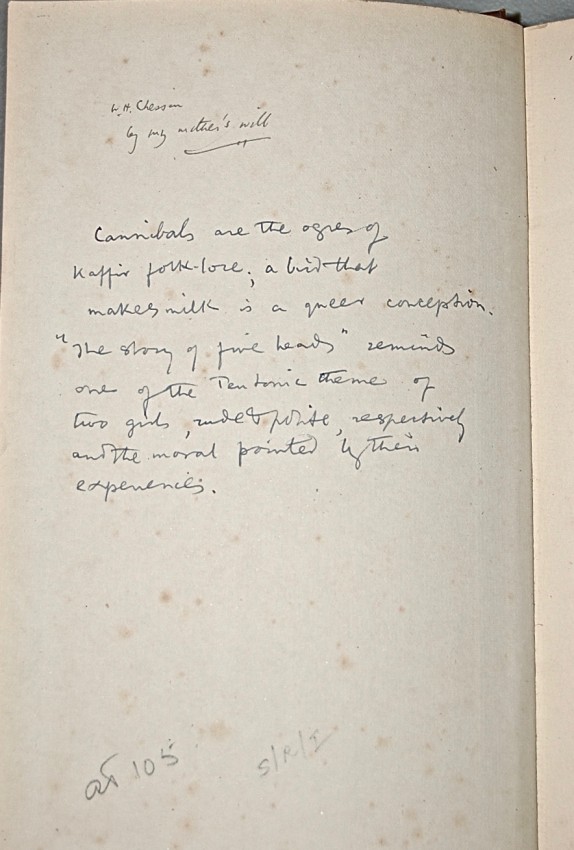 W.H. Chesson
by my mother's will
Cannibals are the ogres of
Kaffir folk-lore; a bird that
makes milk is a queer conception.
"The story of five heads" reminds
one of the Teutonic theme of
two girls, rude & polite, respectively
and the moral pointed by their
experiences.
105
S/R/I